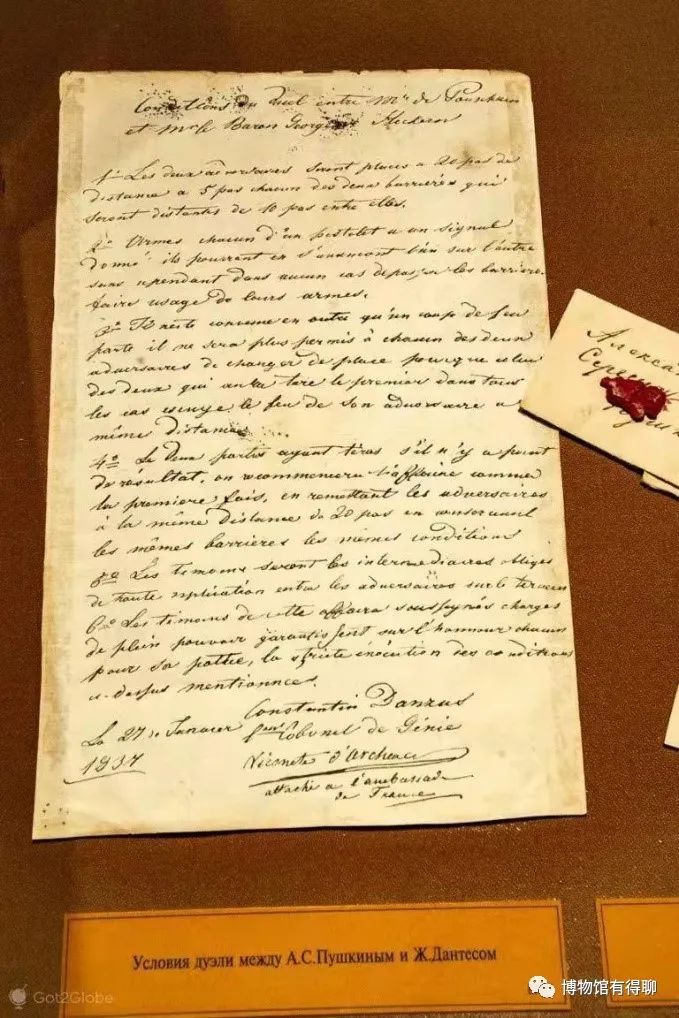 Conditions du duel entre Mr de Pouschkin
et Mr le Baron Georges Heckeren
1º Les deux adversaires seront placés à 20 pas de
distance à 5 pas chacun des deux barrières qui
seront distantes de 10 pas entre elles.
2º Armés chacun d'un pistolet à un signal
donné ils pourront en s'avançant l'un sur l'autre
sans cependant dans aucun cas dépasser les barrières
faire usage de leurs armes.
3º Il reste convenu en outre qu'un coup de feu
parti il ne sera plus permis à chacun des deux
adversaires de changer de place pour que celui
des deux qui aura tiré le premier dans tous
les cas essuye le feu de son adversaire à
même distance
4º Les deux parties ayant tirés s'il n'y a point
de résultat, on recommencera l'affaire comme
la première fois, en remettant les adversaires
à la même distance de 20 pas en conservant
les mêmes barrières les mêmes conditions
5º Les temoins seront les intermediaires obligés
de toute explication entre les adversaires sur le terrain
6º Les temoins de cette affaire soussignés chargés
de plein pouvoir garantissent sur l'honneur chacun
pour sa partie, la stricte exécution des conditions
ci-dessus mentionnées.
Constantin Danzas
Lieut Colonel de Génie
Le 27 de Janvier
1837
Vicomte d'Archiac
attaché à l'ambassade
de France
Алекса
Серге
Условия дуэли между А.С.Пушкиным и Ж.Дантесом
Got2Globe
博物馆有得聊